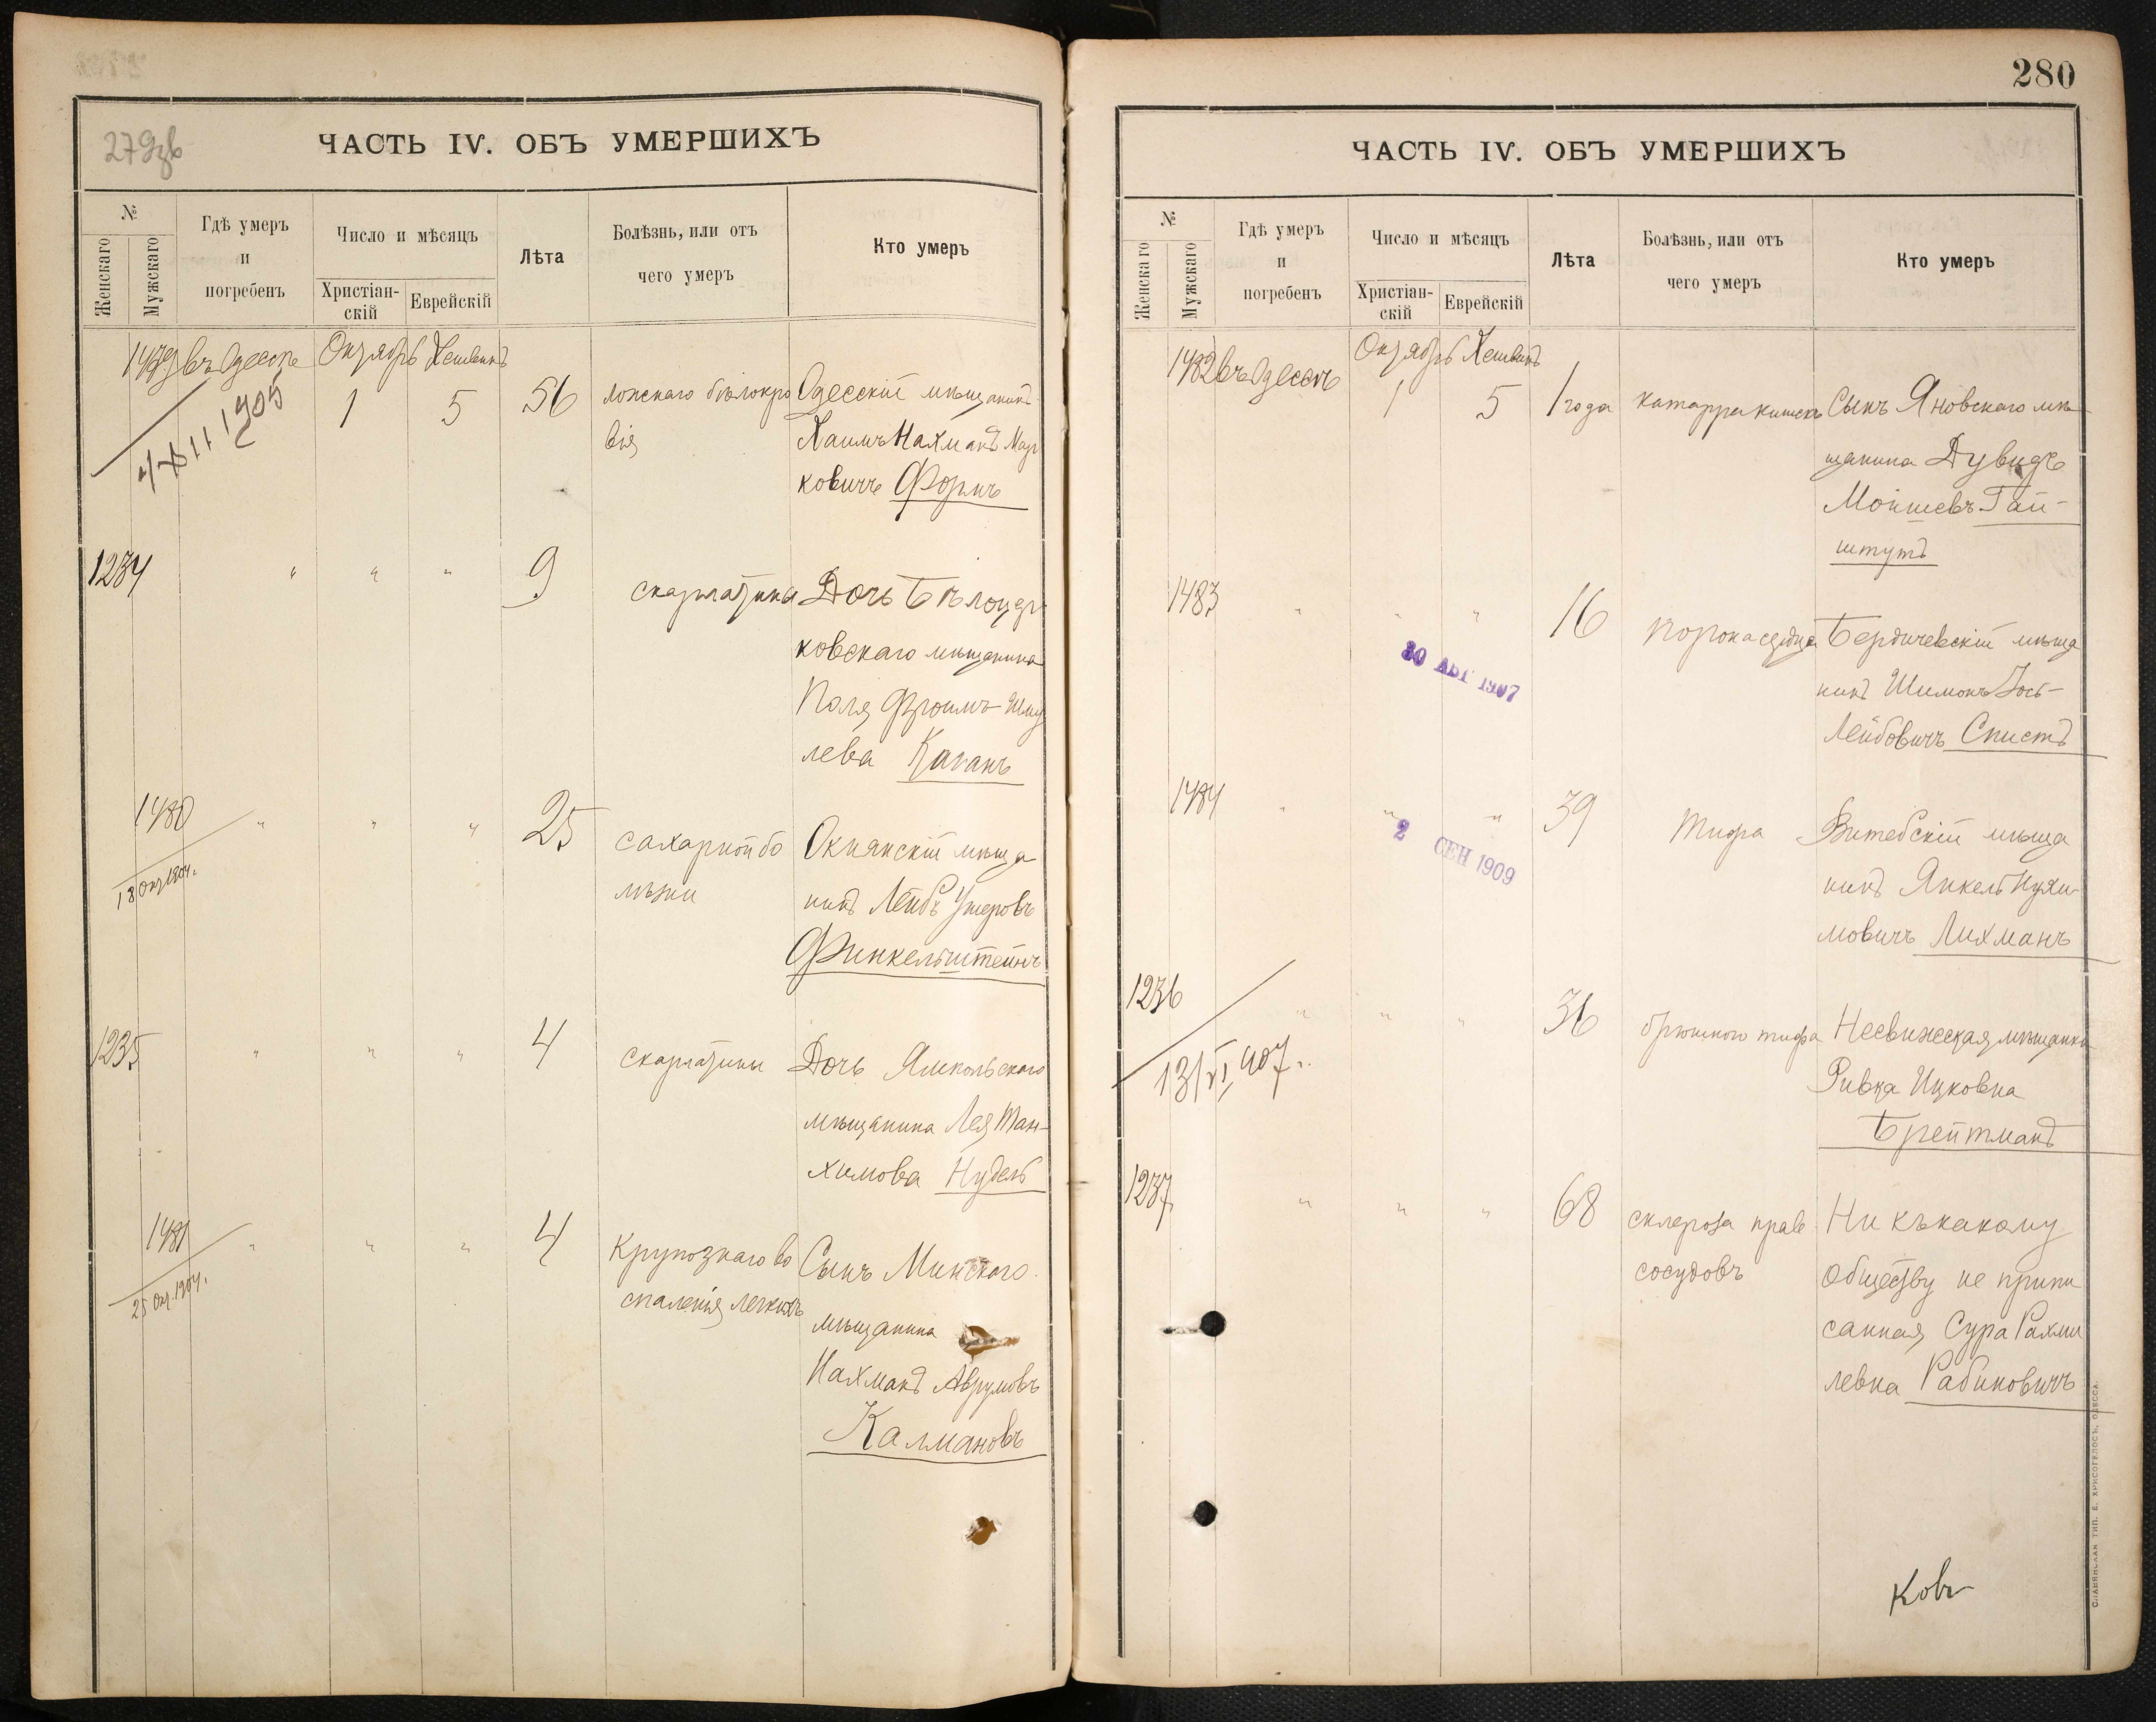 279об
ЧАСТЬ IV. ОБЪ УМЕРШИХЪ
№
Женскаго
Мужскаго
Гдѣ умеръ
и
погребенъ
Число и мѣсяцъ
Христіан-
скій
Еврейскій
Лѣта
Болѣзнь, или отъ
чего умеръ
Кто умеръ
1479 въ Одессѣ Октябрь Хешванъ
1 5 56 ложнаго бѣлокро Одесскій мѣщанинъ
вія Хаимъ Нахманъ Мар
ковичъ Формъ
1905
1234 " " " 9 скарлатины Дочь Бѣлоцер
ковскаго мѣщанина
Поля Фроимъ-Шму
лева Каганъ
1480 " " " 25 сахарной бо Окнянскій мѣща
18 Окт 1904. лѣзни нинъ Лейбъ Ушеровъ
Финкельштейнъ
1235 " " " 4 скарлатины Дочь Ямпольскаго
мѣщанина Лея Тан-
химова Нудель
1481 " " " 4 Крупознаго во Сынъ Минскаго
25 Окт. 1904. спаленія легкихъ мѣщанина
Нахманъ Аврумовъ
Калмановъ
280
ЧАСТЬ IV. ОБЪ УМЕРШИХЪ
№
Женскаго
Мужскаго
Гдѣ умеръ
и
погребенъ
Число и мѣсяцъ
Христіан-
скій
Еврейскій
Лѣта
Болѣзнь, или отъ
чего умеръ
Кто умеръ
1482 въ Одессѣ Октябрь Хешванъ
1 5 1 года катарра кишекъ Сынъ Яновскаго мѣ
щанина Дувидъ
Мойшевъ Гай-
штутъ
1483 " " " 16 порока сердца Бердичевскій мѣща
30 АВГ 1907 нинъ Шимонъ Іось-
Лейбовичъ Спистъ
1484 " " " 39 Тифа Витебскій мѣща
2 СЕН 1909 нинъ Янкель Нухи-
мовичъ Лихманъ
1236 " " " 36 брюшного тифа Несвижеская мѣщанка
13/VI 907 г. Ривка Ицковна
Брейтманъ
1237 " " " 68 склероза крове Ни къ какому
сосудовъ обществу не припи
санная Сура Рахми
левна Рабиновичъ
Ковъ
СЛАВЯНСКАЯ ТИП. Е. ХРИСОГЕЛОСЪ, ОДЕССА.